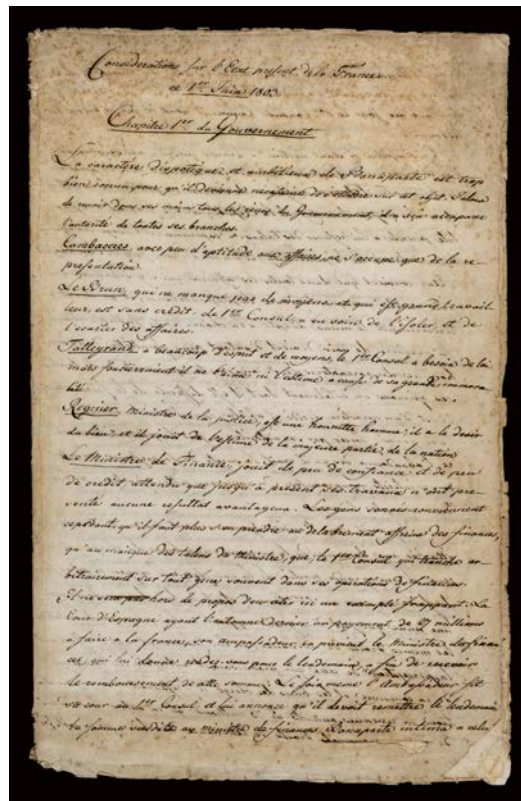 Considerations sur l'Etat present de la France
ce 1er Juin 1803
Chapitre 1er du Gouvernement
Le caractére despotique et ambitieux de Bonaparte est trop
bien connu pour qu'il devienne necessaire de s'etendre sur cet objet. Jaloux
de reunir dans ses mains tous les du Gouvernement, il a
l'autorité de toutes ses branches.
Cambaceres, avec peu d'aptitude aux affaires ne s'occupe que de la re-
presentation.
Le Brun, qui ne manque pas de moyens, et qui est grand travail-
leur, est sans crédit. Le 1er Consul a eu soin de l'isoler, et de
l'ecarter des affaires.
Talleyrand a beaucoup d'esprit et de moyens, le 1er Consul a besoin de lui
mais foncierement il ne l'aime ni l'estime a cause de sa grande immora-
lité.
Regnier, Ministre de la justice, est un honnette homme; il a le desir
du bien, et il jouit de l'estime de la majeure partie de la nation
Le Ministre de Finance, jouit de peu de confiance et de peu
de credit attendu que jusqu'a present ses travaux n'ont pre-
senté aucune resultat avantageux. Les gens sensés conviennent
cependant, qu'il faut plus s'en prendre au delabrement affreux des finances,
qu'au manque des talens du Ministre, que le 1er Consul qui tranche ar-
bitrairement sur tout, gene souvent dans ses opérations de finances
Il ne sera pas hors de propos d'en citer ici un exemple frappant. La
Cour d'Espagne ayant l'automne dernier un payement de 27 millions
a faire a la france, son ambassadeur, en prévient le Ministre des finan
ces, qui lui donne rendez-vous pour le lendemain, a fin de recevoir
le remboursement de cette somme. Le soir meme l'Ambassadeur fit
sa cour au 1er Consul, et lui annonce qu'il devoit remettre le lendemain
la somme susdite au Ministre de finances. Bonaparte intima a celui